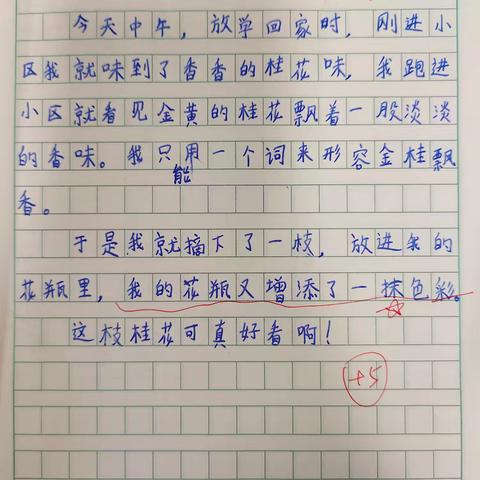 今天中午，放学回家时，刚进小
区我就味到了香香的桂花味，我跑进
小区就看见金黄的桂花飘着一股淡淡
的香味。我只用一个词来形容金桂飘
能
香。
于是我就摘下了一枝，放进我的
花瓶里，我的花瓶又增添了一抹色彩。
这枝桂花可真好看啊！
+5